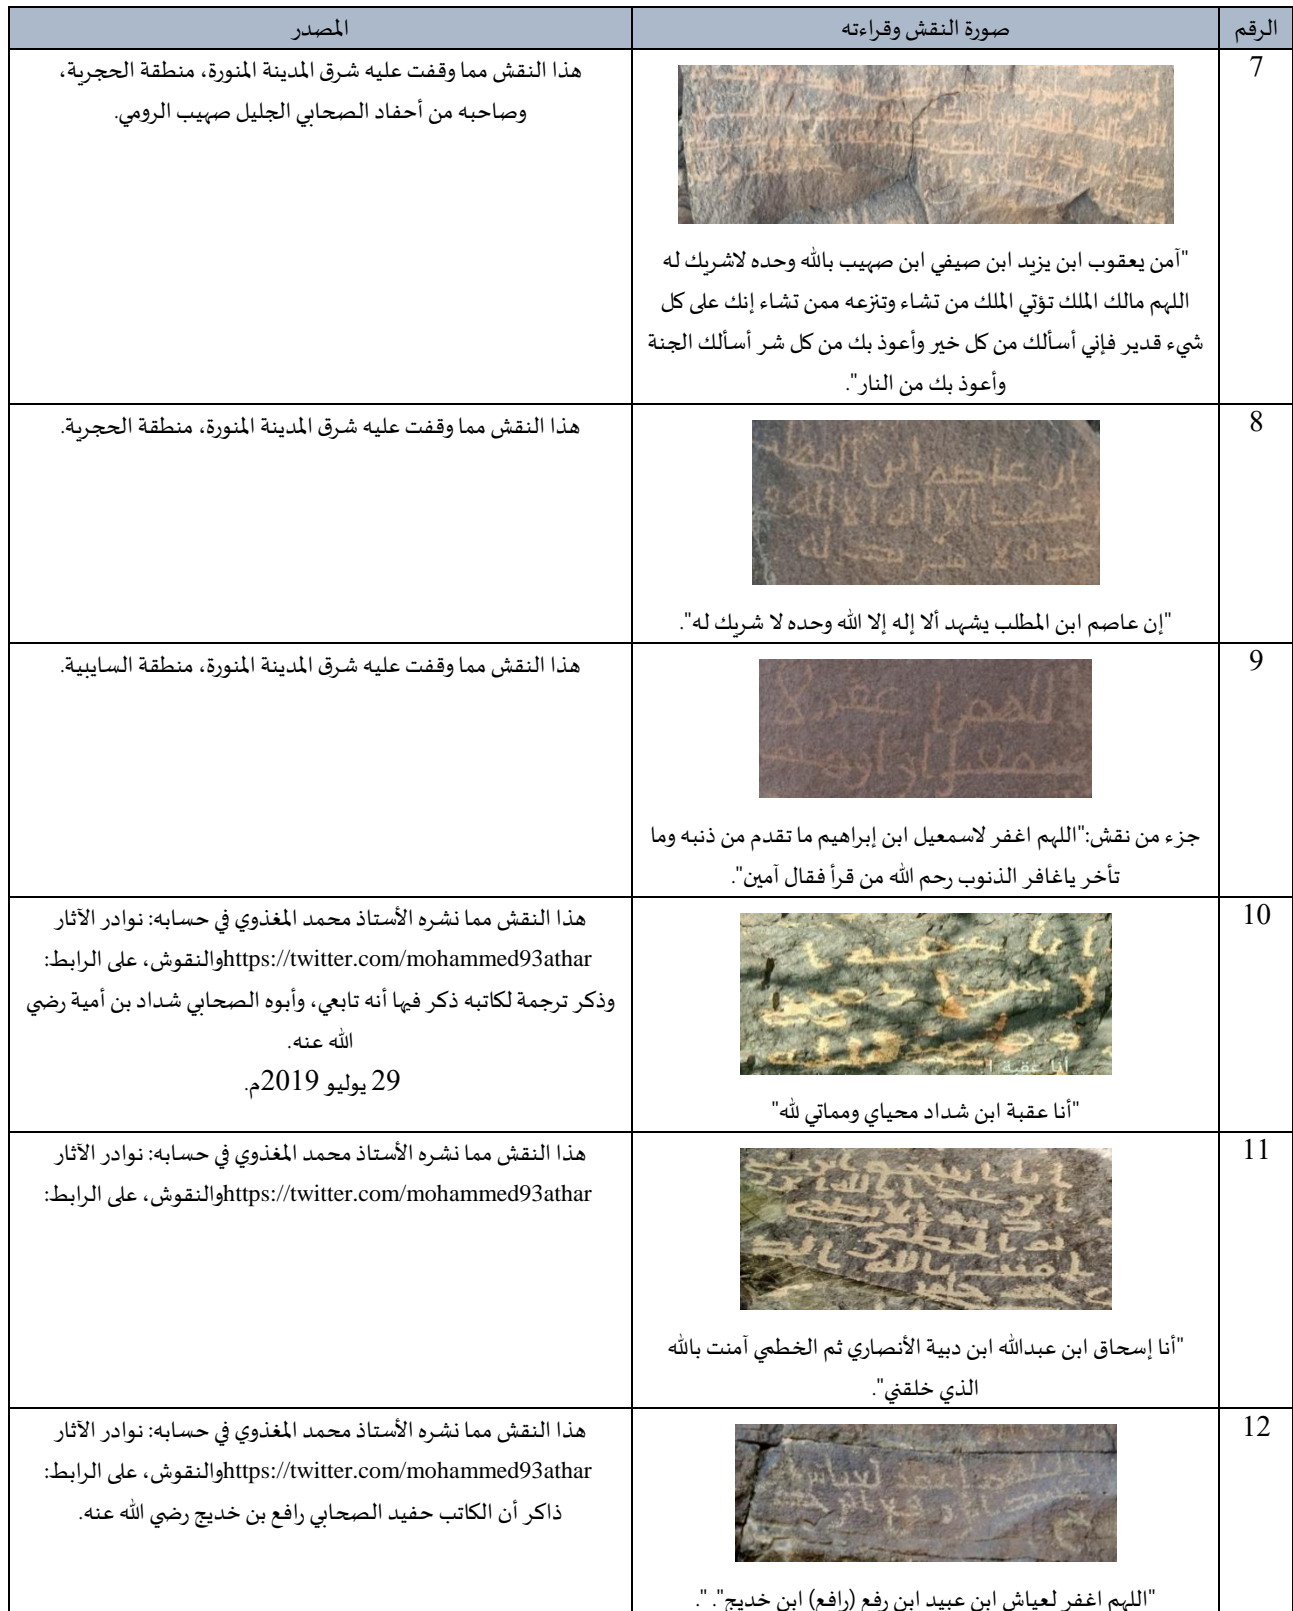 الرقم
صورة النقش وقراءته
المصدر
7
"آمن يعقوب ابن يزيد ابن صيفي ابن صهيب بالله وحده لاشريك له
اللهم مالك الملك تؤتي الملك من تشاء وتنزعه ممن تشاء إنك على كل
شيء قدير فإني أسألك من كل خير وأعوذ بك من كل شر أسألك الجنة
وأعوذ بك من النار".
هذا النقش مما وقفت عليه شرق المدينة المنورة، منطقة الحجرية،
وصاحبه من أحفاد الصحابي الجليل صهيب الرومي.
8
"إن عاصم ابن المطلب يشهد ألا إله إلا الله وحده لا شريك له".
هذا النقش مما وقفت عليه شرق المدينة المنورة، منطقة الحجرية.
9
جزء من نقش:"اللهم اغفر لاسمعيل ابن إبراهيم ما تقدم من ذنبه وما
تأخر ياغافر الذنوب رحم الله من قرأ فقال آمين".
هذا النقش مما وقفت عليه شرق المدينة المنورة، منطقة السايبية.
10
أنا عقبة ا.
"أنا عقبة ابن شداد محياي ومماتي لله"
هذا النقش مما نشره الأستاذ محمد المغذوي في حسابه: نوادر الآثار
والنقوش، على الرابط: https://twitter.com/mohammed93athar
وذكر ترجمة لكاتبه ذكر فيها أنه تابعي، وأبوه الصحابي شداد بن أمية رضي
الله عنه.
29 يوليو 2019م.
11
"أنا إسحاق ابن عبدالله ابن دبية الأنصاري ثم الخطمي آمنت بالله
الذي خلقني".
هذا النقش مما نشره الأستاذ محمد المغذوي في حسابه: نوادر الآثار
والنقوش، على الرابط: https://twitter.com/mohammed93athar
12
"اللهم اغفر لعياش ابن عبيد ابن رفع (رافع) ابن خديج". ".
هذا النقش مما نشره الأستاذ محمد المغذوي في حسابه: نوادر الآثار
والنقوش، على الرابط: https://twitter.com/mohammed93athar
ذاكر أن الكاتب حفيد الصحابي رافع بن خديج رضي الله عنه.